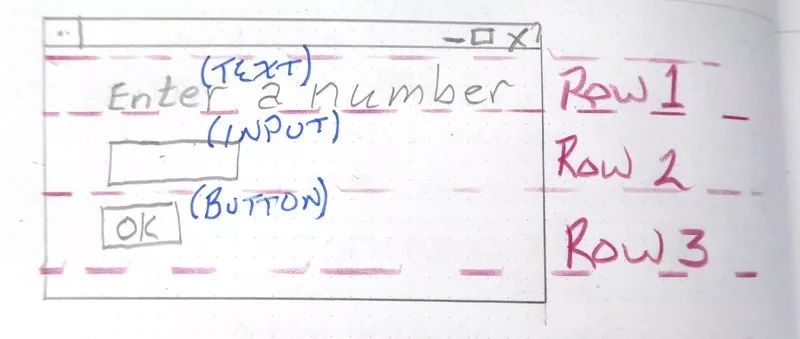 (TEXT)
Enter a number Row 1
(INPUT)
Row 2
(BUTTON)
OK Row 3